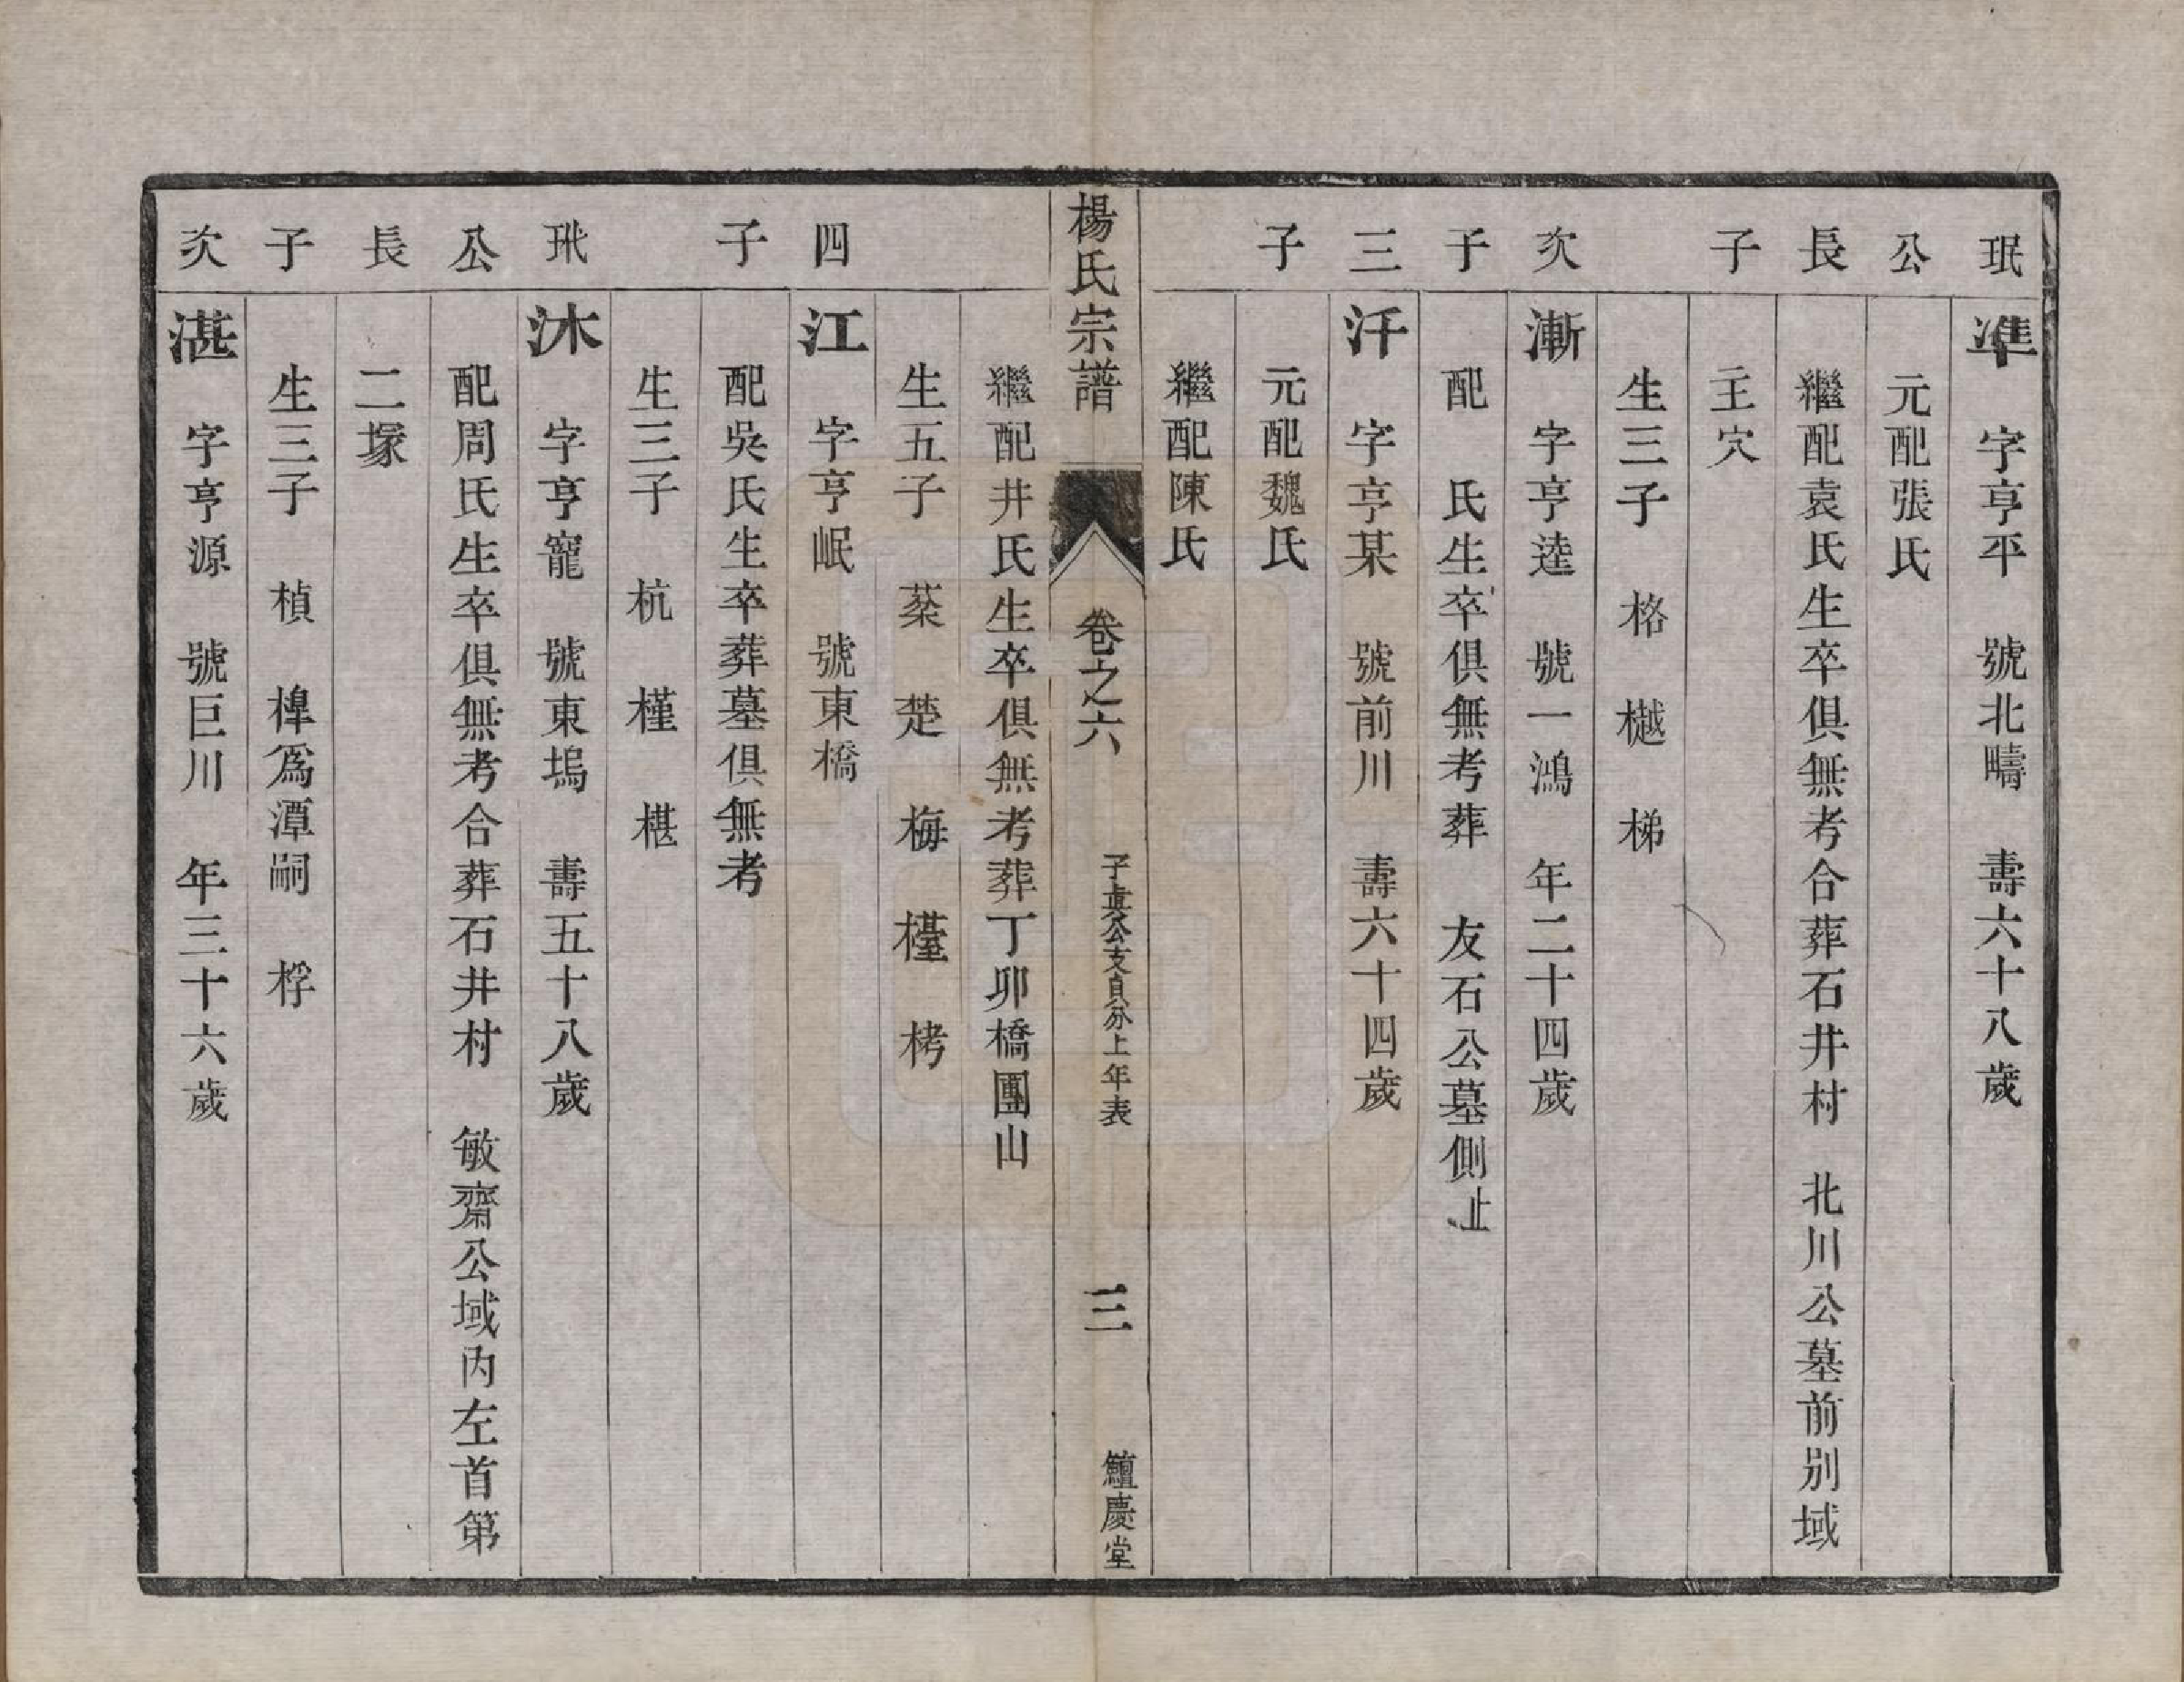 珉 準 字亨平 號北疇 壽六十八歲
公 元配張氏
長 繼配袁氏生卒俱無考合葬石井村 北川公墓前別域
子 主穴
生三子 格 樾 梯
次 漸 字亨逵 號一鴻 年二十四歲
子 配 氏生卒俱無考葬 友石公墓側止
三 汗 字亨某 號前川 壽六十四歲
子 元配魏氏
繼配陳氏
楊氏宗譜 卷之六 子真公支自分上年表 三 鱣慶堂
繼配井氏生卒俱無考葬丁卯橋團山
生五子 棻 楚 梅 檯 栲
四 江 字亨岷 號東橋
子 配吳氏生卒葬墓俱無考
生三子 杭 槿 椹
玳 沐 字亨寵 號東塢 壽五十八歲
公 配周氏生卒俱無考合葬石井村 敏齋公域內左首第
長 二塚
子 生三子 楨 椲爲潭嗣 桴
次 湛 字亨源 號巨川 年三十六歲